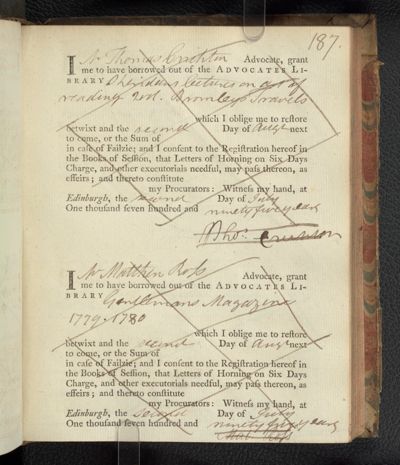 187.
I Mr Thomas Crichton Advocate, grant
me to have borrowed out of the ADVOCATES LI-
BRARY Sheridans lectures on art of
reading 2 vol. Bromleys Travels
which I oblige me to restore
betwixt and the second Day of Augt next
to come, or the Sum of
in case of Failzie; and I consent to the Registration hereof in
the Books of Session, that Letters of Horning on Six Days
Charge, and other executorials needful, may pass thereon, as
effeirs; and thereto constitute
my Procurators: Witness my hand, at
Edinburgh, the second Day of July
One thousand seven hundred and ninety five years
Thos. Crichton
I Mr Matthew Ross Advocate, grant
me to have borrowed out of the ADVOCATES LI-
BRARY Gentlemans Magazine
1779-1780
which I oblige me to restore
betwixt and the second Day of Augt next
to come, or the Sum of
in case of Failzie; and I consent to the Registration hereof in
the Books of Session, that Letters of Horning on Six Days
Charge, and other executorials needful, may pass thereon, as
effeirs; and thereto constitute
my Procurators: Witness my hand, at
Edinburgh, the second Day of July
One thousand seven hundred and ninety five years
Mat. Ross